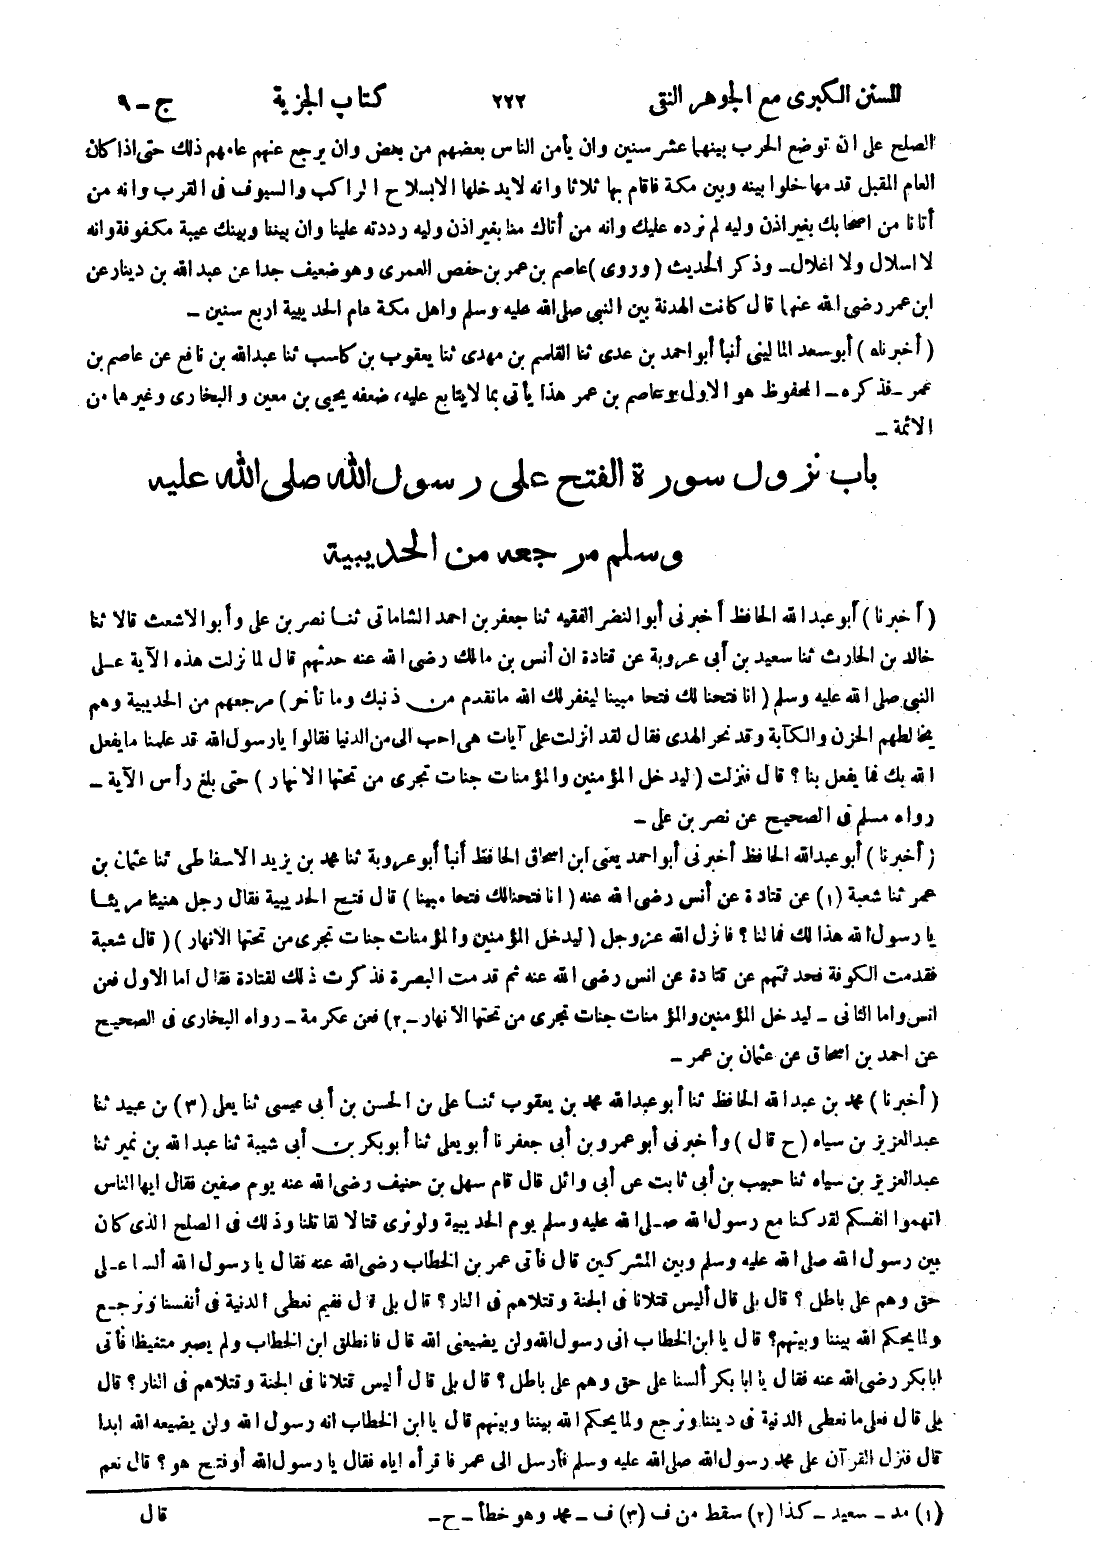 للسنن الكبرى مع الجوهر النقى ٢٢٢ كتاب الجزية ج – ٩
الصلح على ان توضع الحرب بينهما عشر سنين وان يأمن الناس بعضهم من بعض وان يرجع عنهم عامهم ذلك حتى اذا كان
العام المقبل قدمها خلوا بينه وبين مكة فاقام بها ثلاثا وانه لا يدخلها الا بسلاح الراكب والسيوف فى القرب وانه من
أتانا من اصحابك بغير اذن وليه لم نرده عليك وانه من أتاك منا بغير اذن وليه رددته علينا وان بيننا وبينك عيبة مكفوفة وانه
لا اسلال ولا اغلال – وذكر الحديث (وروى) عاصم بن عمر بن حفص العمرى وهو ضعيف جدا عن عبد الله بن دينار عن
ابن عمر رضى الله عنهما قال كانت الهدنة بين النبي صلى الله عليه وسلم واهل مكة عام الحديبية اربع سنين –
(أخبرناه) أبو سعد المالينى أنبأ أبو احمد بن عدى ثنا القاسم بن مهدى ثنا يعقوب بن كاسب ثنا عبدالله بن نافع عن عاصم بن
عمر – فذكره – المحفوظ هو الاول وعاصم بن عمر هذا يأتى بما لا يتابع عليه، ضعفه يحيى بن معين والبخارى وغيرهما من
الائمة –
باب نزول سورة الفتح على رسول الله صلى الله عليه
وسلم مرجعه من الحديبية
(أخبرنا) أبو عبد الله الحافظ أخبرنى أبوا لنضر الفقيه ثنا جعفر بن احمد الشاماتى ثنا نصر بن على وأبو الاشعث قالا ثنا
خالد بن الحارث ثنا سعيد بن أبى عروبة عن قتادة ان أنس بن مالك رضى الله عنه حدثهم قال لما نزلت هذه الآية على
النبي صلى الله عليه وسلم (انا فتحنا لك فتحا مبينا ليغفر لك الله ما تقدم من ذنبك وما تأخر) مرجعهم من الحديبية وهم
يخالطهم الحزن والكآبة وقد نحر الهدى فقال لقد انزلت على آيات هى احب الى من الدنيا فقالوا يا رسول الله قد علمنا ما يفعل
الله بك فما يفعل بنا؟ قال فنزلت (ليدخل المؤمنين والمؤمنات جنات تجرى من تحتها الانهار) حتى بلغ رأس الآية –
رواه مسلم فى الصحيح عن نصر بن على –
(أخبرنا) أبو عبدالله الحافظ أخبرنى أبو احمد يعنى ابن اسحاق الحافظ أنبأ أبو عروبة ثنا محمد بن يزيد الاسفاطى ثنا عثمان بن
عمر ثنا شعبة (١) عن قتادة عن أنس رضى الله عنه (انا فتحنا لك فتحا مبينا) قال فتح الحديبية فقال رجل هنيئا مريئا
يا رسول الله هذا لك فما لنا؟ فانزل الله عزوجل (ليدخل المؤمنين والمؤمنات جنات تجرى من تحتها الانهار) (قال شعبة
فقدمت الكوفة فحدثتهم عن قتادة عن انس رضى الله عنه ثم قدمت البصرة فذكرت ذلك لقتادة فقال اما الاول فعن
انس واما الثانى – ليدخل المؤمنين والمؤمنات جنات تجرى من تحتها الانهار – ٢) فعن عكرمة – رواه البخارى فى الصحيح
عن احمد بن اسحاق عن عثمان بن عمر –
(أخبرنا) محمد بن عبد الله الحافظ ثنا أبو عبدالله محمد بن يعقوب ثنا على بن الحسن بن أبى عيسى ثنا يعلى (٣) بن عبيد ثنا
عبدالعزيز بن سياه (ح قال) وأخبرنى أبو عمرو بن أبى جعفر نا أبو يعلى ثنا أبو بكر بن أبى شيبة ثنا عبد الله بن نمير ثنا
عبدالعزيز بن سياه ثنا حبيب بن أبى ثابت عن أبى وائل قال قام سهل بن حنيف رضى الله عنه يوم صفين فقال ايها الناس
اتهموا انفسكم لقد كنا مع رسول الله صلى الله عليه وسلم يوم الحديبية ولو نرى قتالا لقاتلنا وذلك فى الصلح الذى كان
بين رسول الله صلى الله عليه وسلم وبين المشركين قال فأتى عمر بن الخطاب رضى الله عنه فقال يا رسول الله ألسنا على
حق وهم على باطل؟ قال بلى قال أليس قتلانا فى الجنة وقتلاهم فى النار؟ قال بلى قال ففيم نعطى الدنية فى أنفسنا ونرجع
ولما يحكم الله بيننا وبينهم؟ قال يا ابن الخطاب انى رسول الله ولن يضيعنى الله قال فانطلق ابن الخطاب ولم يصبر متغيظا فأتى
ابا بكر رضى الله عنه فقال يا ابا بكر ألسنا على حق وهم على باطل؟ قال بلى قال أليس قتلانا فى الجنة وقتلاهم فى النار؟ قال
بلى قال فعلى ما نعطى الدنية فى ديننا ونرجع ولما يحكم الله بيننا وبينهم قال يا ابن الخطاب انه رسول الله ولن يضيعه الله ابدا
قال فنزل القرآن على محمد رسول الله صلى الله عليه وسلم فأرسل الى عمر فاقرأه اياه فقال يا رسول الله أوفتح هو؟ قال نعم
(١) مد – سعيد – كذا (٢) سقط من ف (٣) ف – محمد وهو خطأ – ح – قال